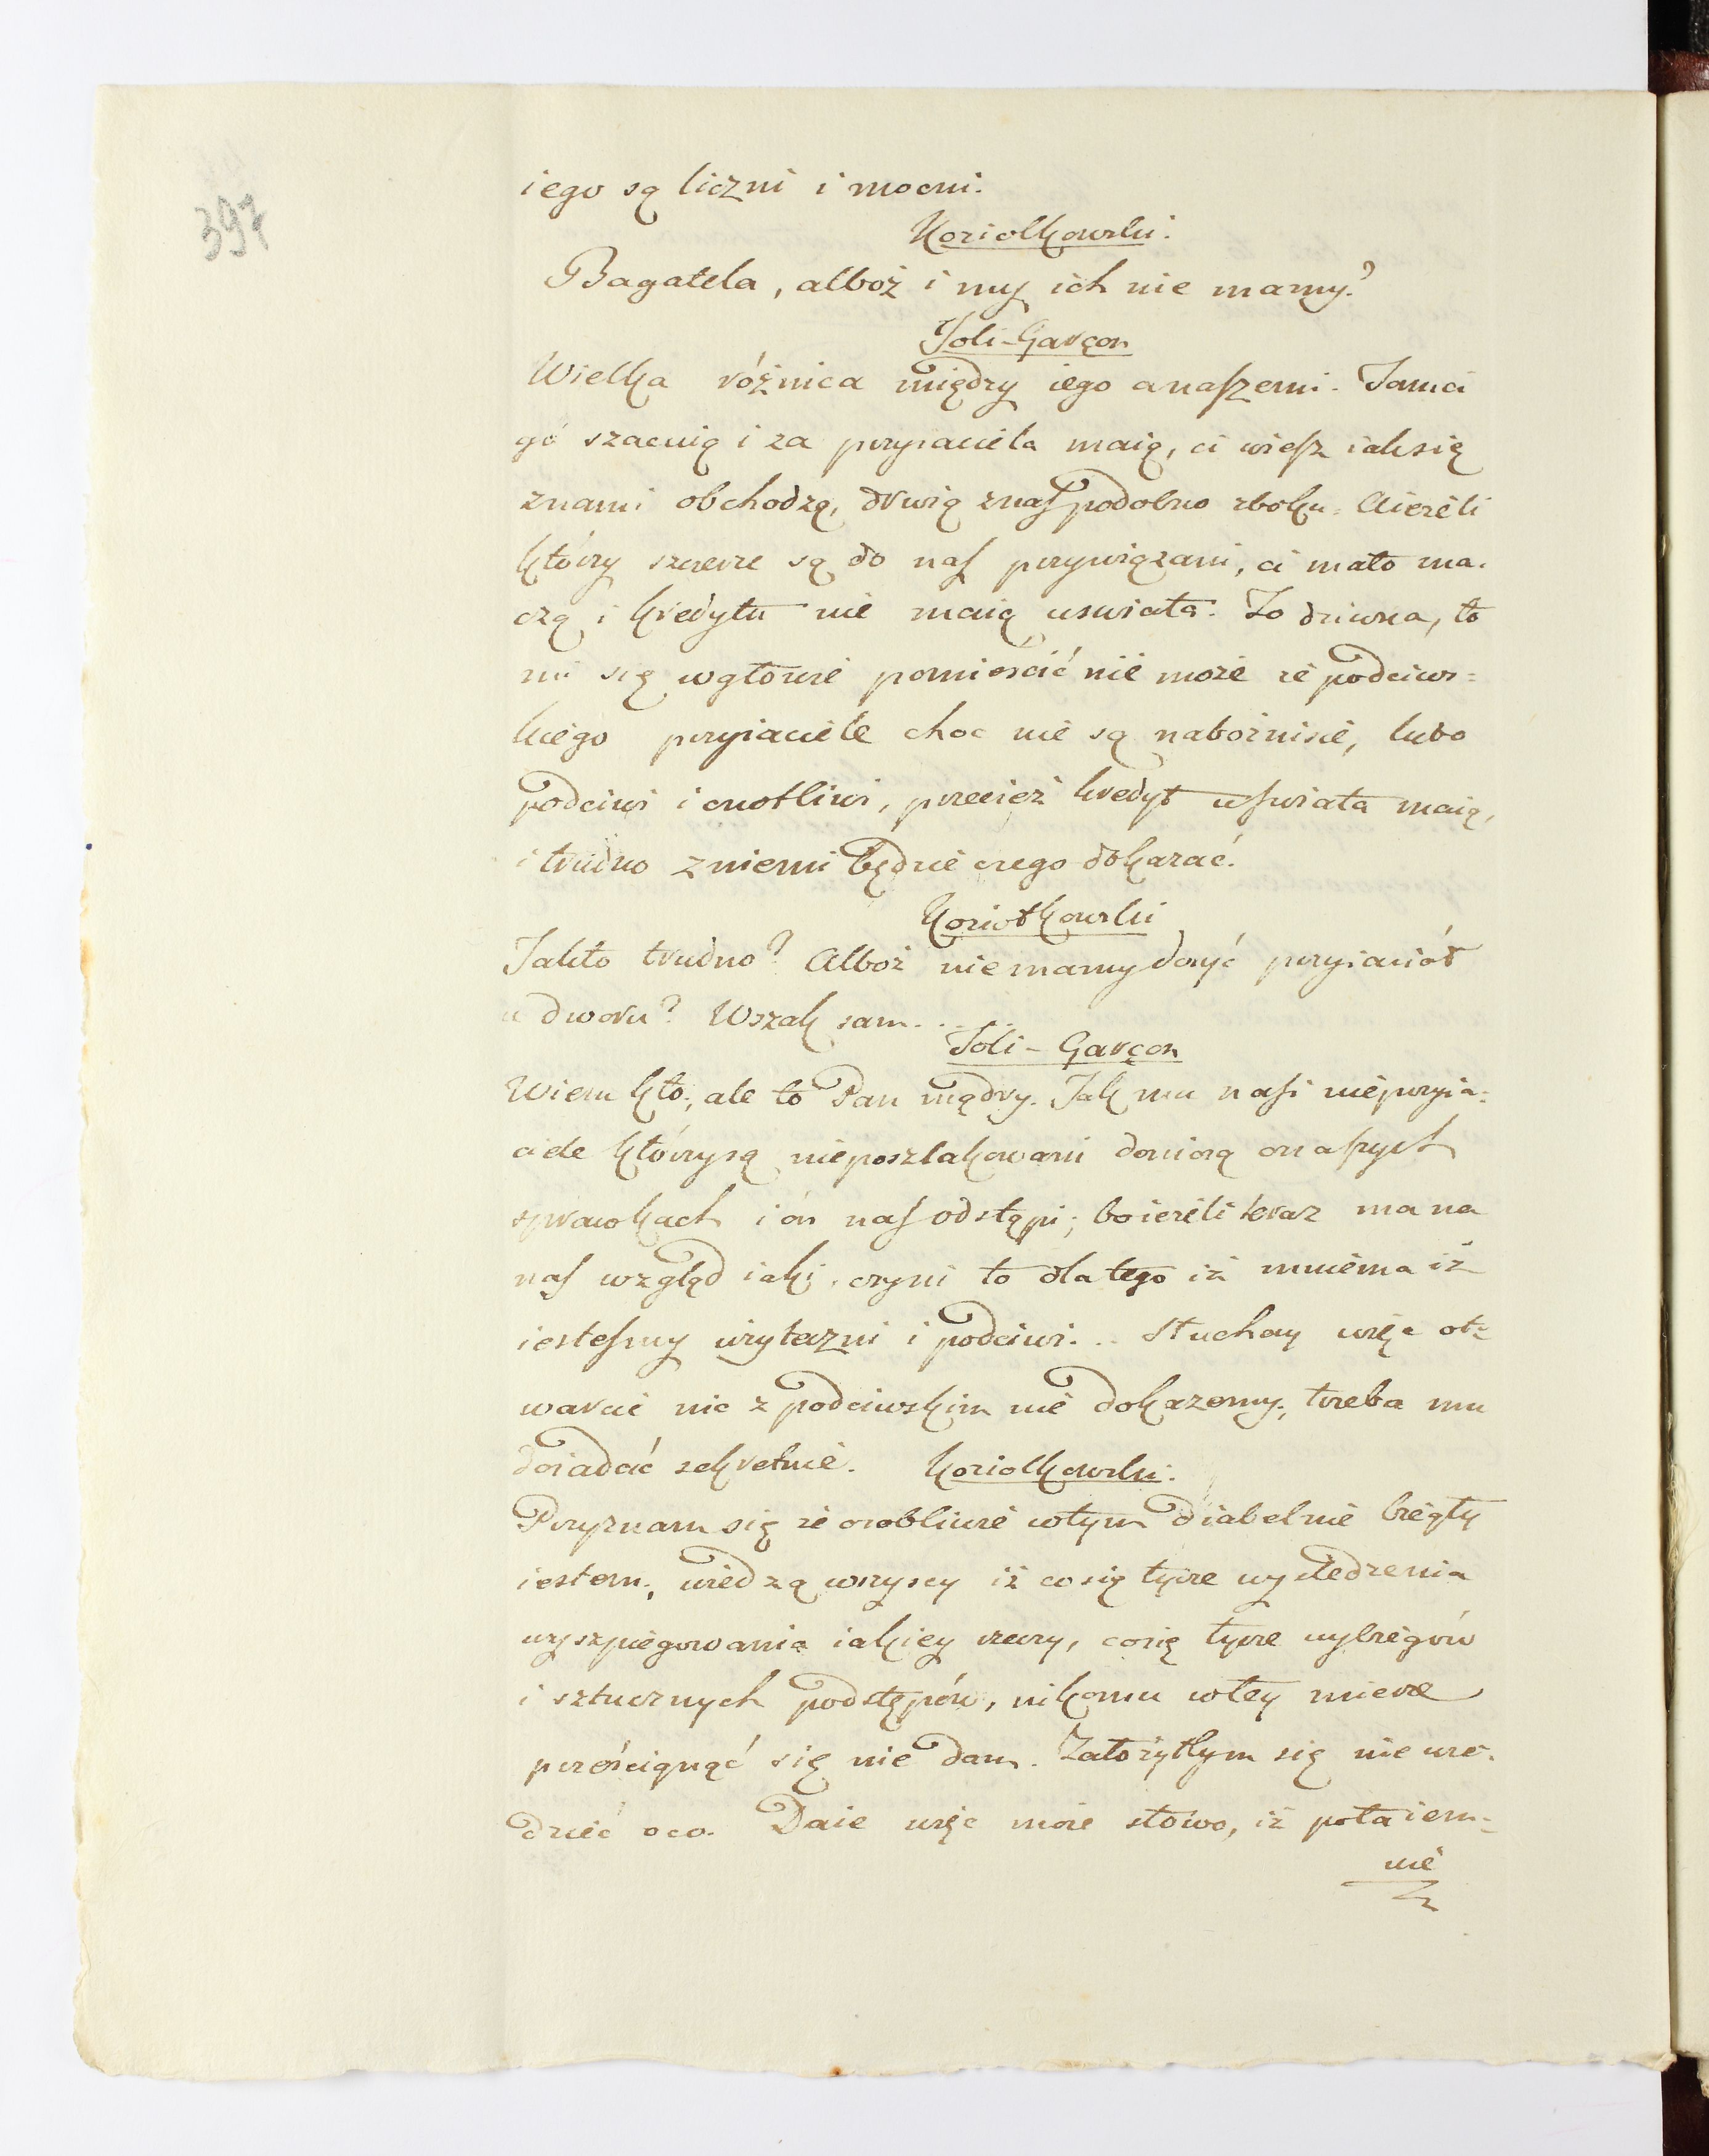 397
iego są liczni i mocni.
Koziolkowski.
Bagatela, alboż i my ich nie mamy?
Joli-Garçon
Wielka róźnica między iego a naszemi. Tamci
go szacuią i za przyiaciela maią, ci wiesz iak się
znami obchodzą, drwią znas podobno zboku. A ieżeli
którzy szczerze są do nas przywiązani, ci mało zna-
czą i kredytu nie maią uswiata. To dziwna, to
mi się wgłowie pomieścić nie może że podciws=
kiego przyiaciele choc nie są nabożnisie, lubo
podciwi i cnotliwi, przecięż kredyt uswiata maią,
i trudno zniemi będzie czego dokazać.
Koziołkowski
Jakto trudno? Alboż niemamy dosyć przyiaciół
u dworu? Wszak sam....
Joli-Garçon
Wiem kto, ale to Pan mądry. Jak mu nasi nieprzyia=
ciele którzy są nieposzlakowani doniosą o naszych
sprawkach i ón nas odstąpi; bo ieżeli teraz ma na
nas wzgląd iaki, czyni to dla tego iż mniema iż
iestesmy użyteczni i podciwi... Słuchay więc ot=
warcie nic z podciwskim nie dokazemy, trzeba mu
dosiadać sekretnie. Koziolkowski.
Przyznam się że osobliwie wtym diabelnie biegły
iestem, wiedzą wszyscy iż co się tycze wysledzenia
wyszpiegowania iakiey rzeczy, co się tycze wybiegów
i sztucznych podstępów, nikomu wtey mierze
prześcignąć się nie dam. Załoźyłbym się nie wie-
dzieć oco. Daie więc moie słowo, iż potaiem-
nie